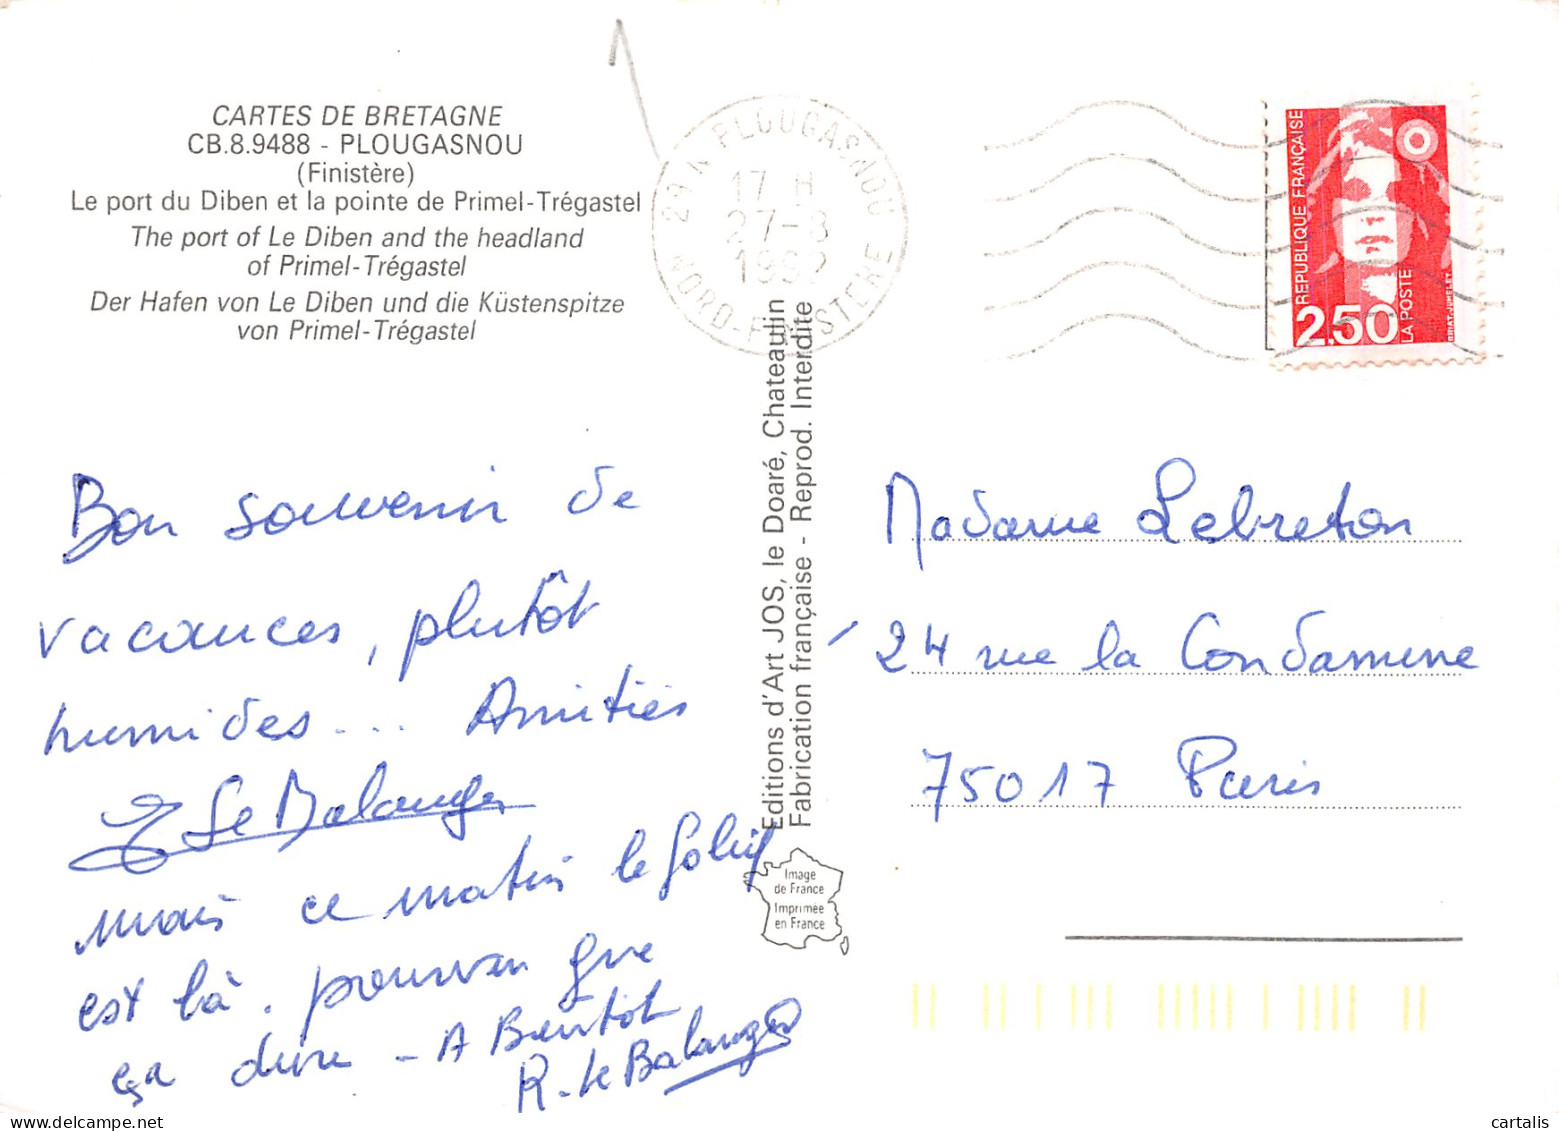 CARTES DE BRETAGNE
CB.8.9488 - PLOUGASNOU
(Finistère)
Le port du Diben et la pointe de Primel-Trégastel
The port of Le Diben and the headland
of Primel-Trégastel
Der Hafen von Le Diben und die Küstenspitze
von Primel-Trégastel
29 N PLOUGASNOU
17 H
27-8
1992
NORD-FINISTERE
REPUBLIQUE FRANÇAISE
2,50
LA POSTE
BRIAT-JUMELET
Bon souvenir de
vacances, plutôt
humides... Amitiés
Le Balanger
mais ce matin le soleil
est là. pourvu que
ça dure - A Bientôt
R. Le Balanger
Editions d'Art JOS, le Doaré, Chateaulin
Fabrication française - Reprod. Interdite
Image
de France
Imprimée
en France
Madame Lebreton
24 rue la Condamine
75017 Paris
cartalis